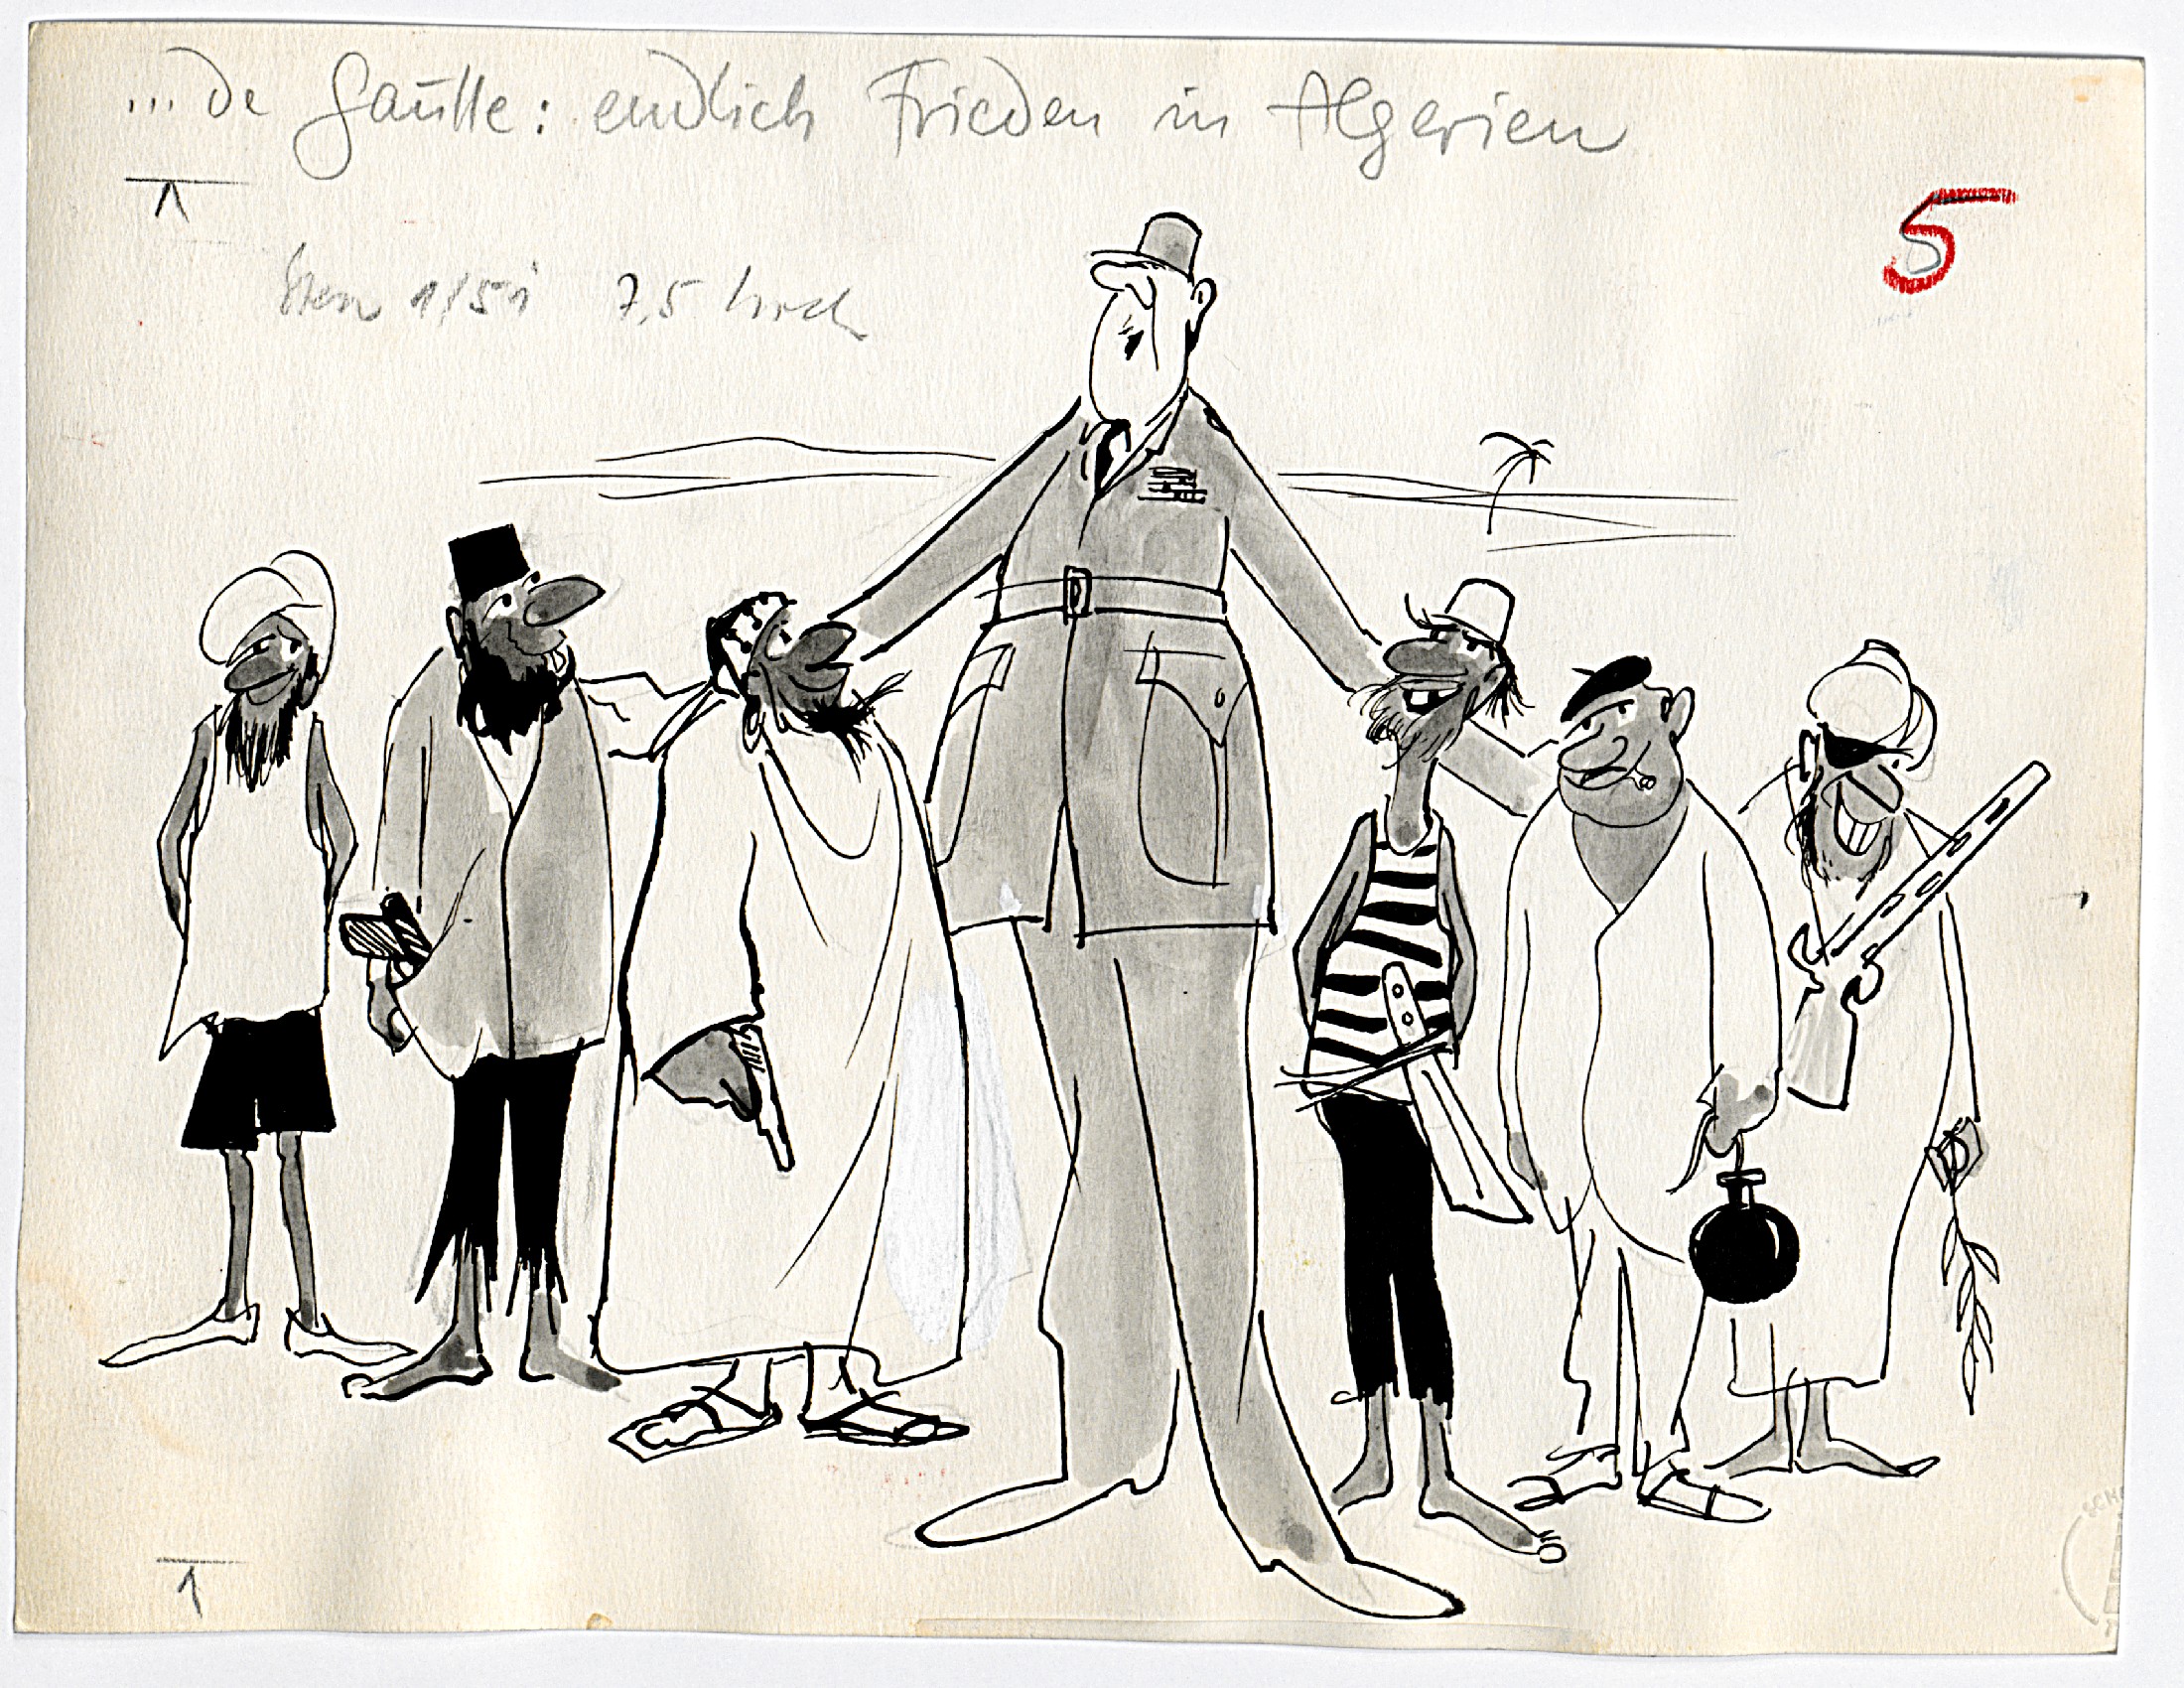 ... de Gaulle: endlich Frieden in Algerien
5
7,5 hoch